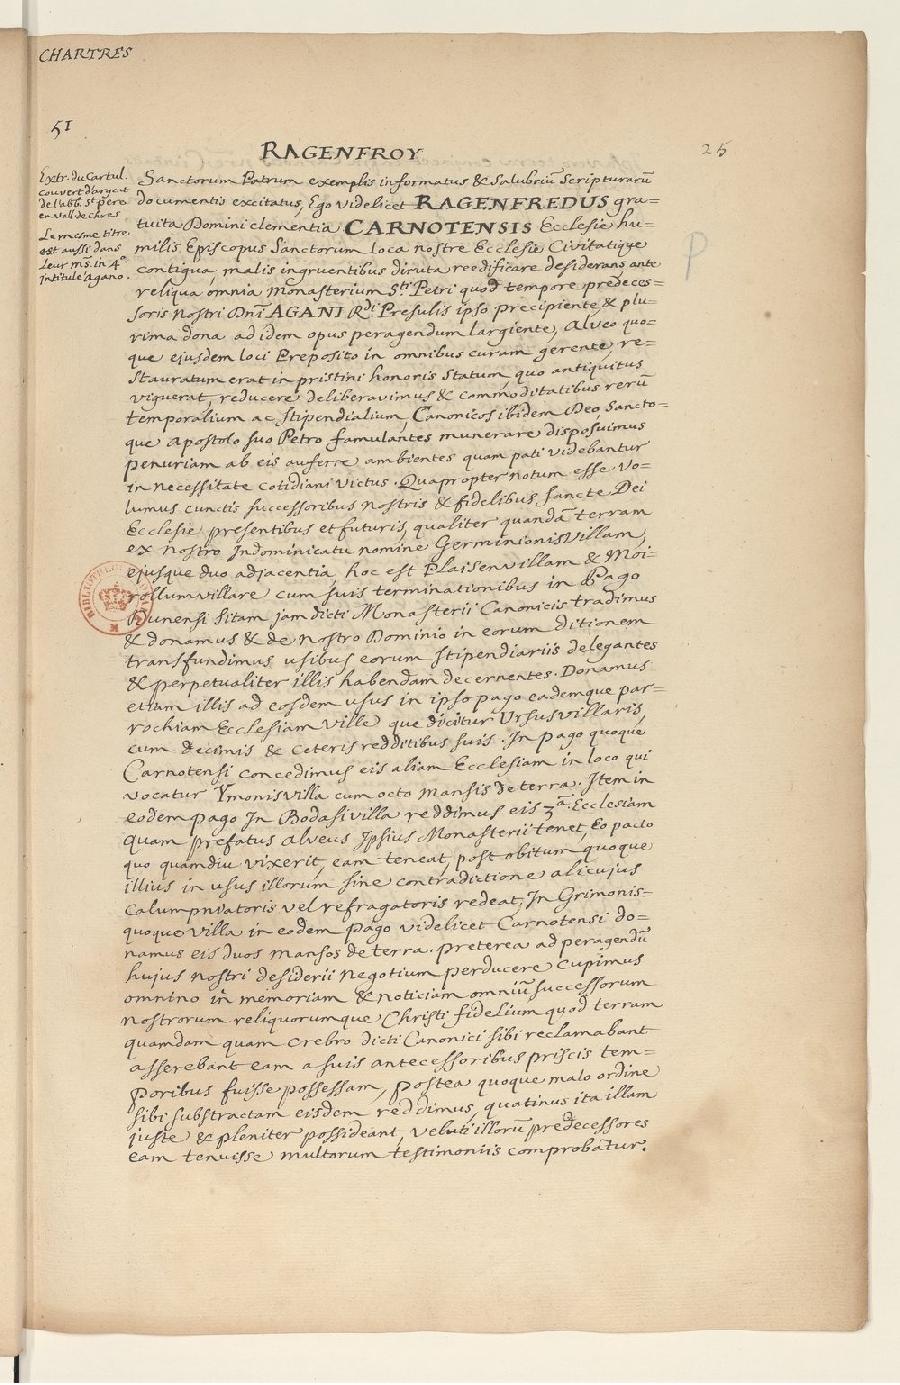 CHARTRES
51
25
RAGENFROY
Extr. du Cartul.
couvert d'argent
de l'abb. St pere
en vall. de chres
Le mesme titre
est aussi dans
leur ms. in 4°
intitulé Agano.
P
Sanctorum Patrum exemplis informatus & Salubriū Scripturarū
documentis excitatus, Ego videlicet RAGENFREDUS gra=
tuita Domini clementia CARNOTENSIS Ecclesie hu=
milis Episcopus Sanctorum loca nostre Ecclesie Civitatique
contigua, malis ingruentibus diruta reedificare desiderans ante
reliqua omnia Monasterium Sti Petri quod tempore predeces=
soris nostri Dnī AGANI Rdi Presulis ipso precipiente & plu=
rima dona ad idem opus peragendum largiente, Alveo quo=
que ejusdem loci Preposito in omnibus curam gerente, re=
stauratum erat in pristini honoris statum, quo antiquitus
viguerat, reducere deliberavimus & commoditatibus rerū
temporalium ac stipendialium, Canonicos ibidem Deo, Sancto=
que Apostolo suo Petro famulantes munerare disposuimus
penuriam ab eis auferre ambientes quam pati videbantur
in necessitate cotidiani victus. Quapropter notum esse vo=
lumus cunctis successoribus nostris & fidelibus sancte Dei
Ecclesie presentibus et futuris, qualiter quandā terram
ex nostro Indominicatu nomine Germinionisvillam,
ejusque duo adjacentia, hoc est Plaisenvillam & Moi=
rollumvillare cum suis terminationibus in Pago
Dunensi sitam jam dicti Monasterii Canonicis tradimus
& donamus & de nostro Dominio in eorum ditionem
transfundimus, usibus eorum stipendiariis delegantes
& perpetualiter illis habendam decernentes. Donamus
etiam illis ad eosdem usus in ipso pago eademque par=
rochiam Ecclesiam ville que dicitur Ursusvillaris
cum decimis & ceteris redditibus suis. In pago quoque
Carnotensi concedimus eis aliam Ecclesiam in loco qui
vocatur Ymonisvilla cum octo mansis de terra. Item in
eodem pago In Bodasivilla reddimus eis 3ā. Ecclesiam
quam prefatus Alveus Ipsius Monasterii tenet, Eo pacto
quo quamdiu vixerit, eam teneat, post obitum quoque
illius in usus illorum sine contradictione alicujus
calumpniatoris vel refragatoris redeat. In Grimonis=
quoque villa in eodem pago videlicet Carnotensi do=
namus eis duos mansos de terra. preterea ad peragendū
hujus nostri desiderii negotium perducere cupimus
omnino in memoriam & notitiam omniū successorum
nostrorum reliquorumque Christi fidelium quod terram
quamdam quam crebro dicti Canonici sibi reclamabant
asserebant eam a suis antecessoribus priscis tem=
poribus fuisse possessam, postea quoque malo ordine
sibi substractam eisdem reddimus, quatinus ita illam
juste & pleniter possideant, veluti illorū predecessores
eam tenuisse multorum testimoniis comprobatur.